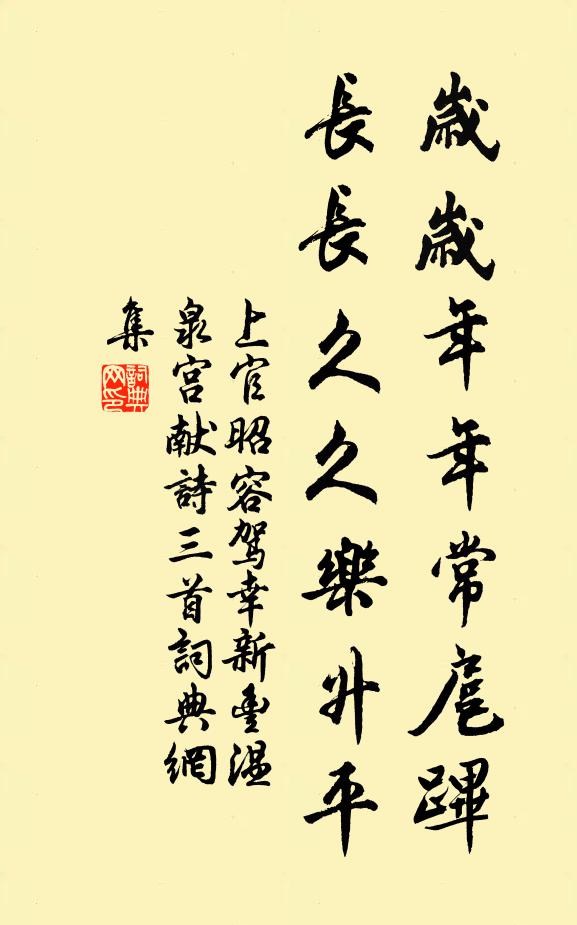 歲歲年年常扈蹕
長長久久樂升平
上官昭容駕幸新豐溫
泉宮献詩三首詞典網
集
詞典
网印